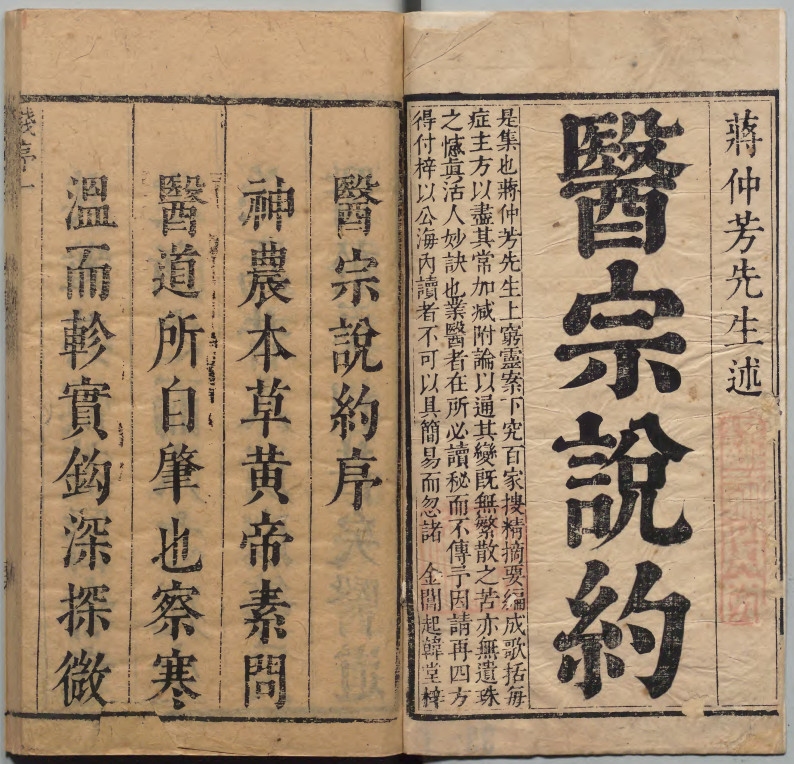 蔣仲芳先生述
醫宗說約
是集也蔣仲芳先生上窮靈素下究百家搜精摘要編成歌括每
症主方以盡其常加减附論以通其變旣無繁散之苦亦無遺珠
之憾眞活人妙訣也業醫者在所必讀秘而不傳予因請再四方
得付梓以公海內讀者不可以具簡易而忽諸 金閶起韓堂梓
醫宗說約序
神農本草黃帝素問
醫道所自肇也察寒
溫而軫實鈎深探微
序一